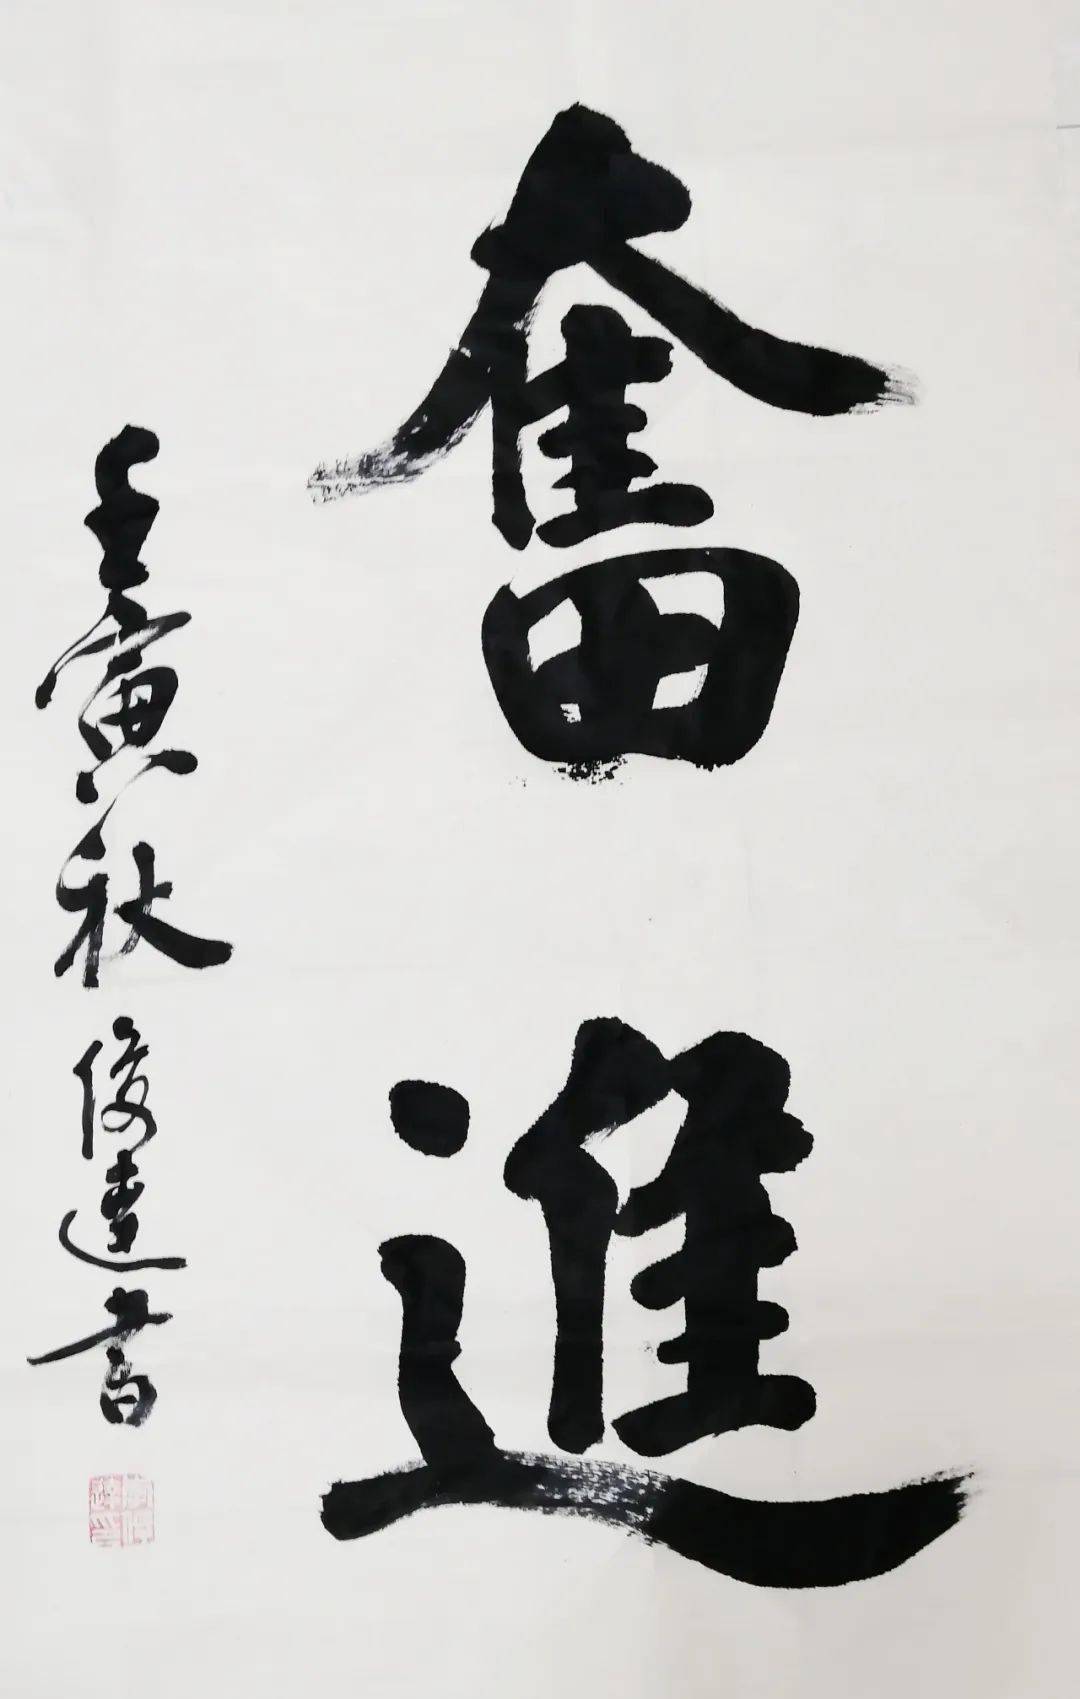 奮進
壬寅秋 俊達書